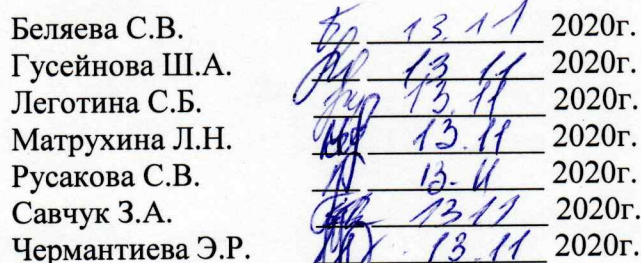 Беляева С.В. 13.11 2020г.
Гусейнова Ш.А. 13.11 2020г.
Леготина С.Б. 13.11 2020г.
Матрухина Л.Н. 13.11 2020г.
Русакова С.В. 13.11 2020г.
Савчук З.А. 13.11 2020г.
Чермантиева Э.Р. 13.11 2020г.